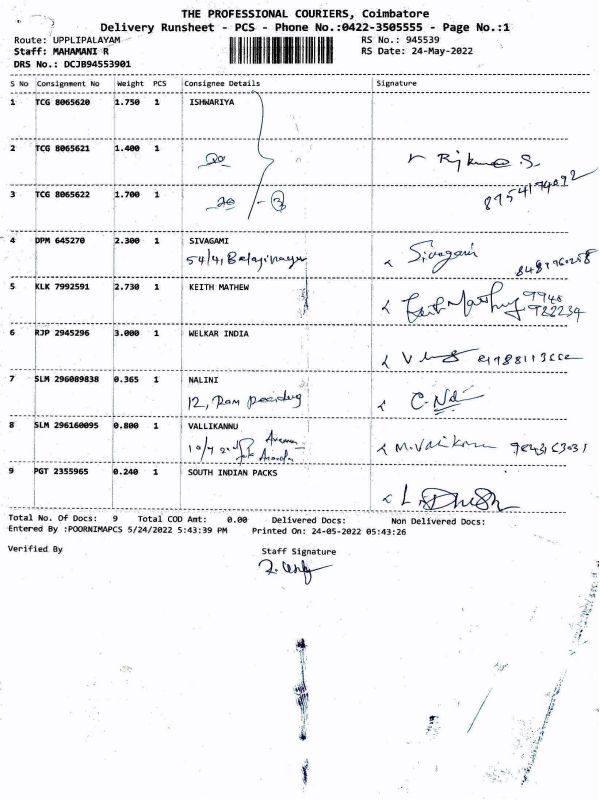 THE PROFESSIONAL COURIERS, Coimbatore
Delivery Runsheet - PCS - Phone No.:0422-3505555 - Page No.:1
Route: UPPLIPALAYAM
RS No.: 945539
Staff: MAHAMANI R
RS Date: 24-May-2022
DRS No.: DCJB94553901
S No Consignment No Weight PCS Consignee Details Signature
1 TCG 8065620 1.750 1 ISHWARIYA
2 TCG 8065621 1.400 1
3 TCG 8065622 1.700 1
8754174092
4 DPM 645270 2.300 1 SIVAGAMI
54/4, Balajinagar Sivagami
5 KLK 7992591 2.730 1 KEITH MATHEW
6 RJP 2945296 3.000 1 WELKAR INDIA
7 SLM 296089838 0.365 1 NALINI
12, Ram
8 SLM 296160095 0.800 1 VALLIKANNU
9 PGT 2355965 0.240 1 SOUTH INDIAN PACKS
Total No. Of Docs: 9 Total COD Amt: 0.00 Delivered Docs: Non Delivered Docs:
Entered By :POORNIMAPCS 5/24/2022 5:43:39 PM Printed On: 24-05-2022 05:43:26
Verified By Staff Signature